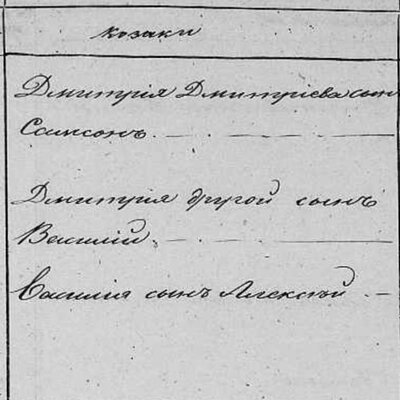 козаки
Дмитрія Дмитріева сын
Самсонъ.
Дмитрия другой сынъ
Василій.
Василия сынъ Алексѣй